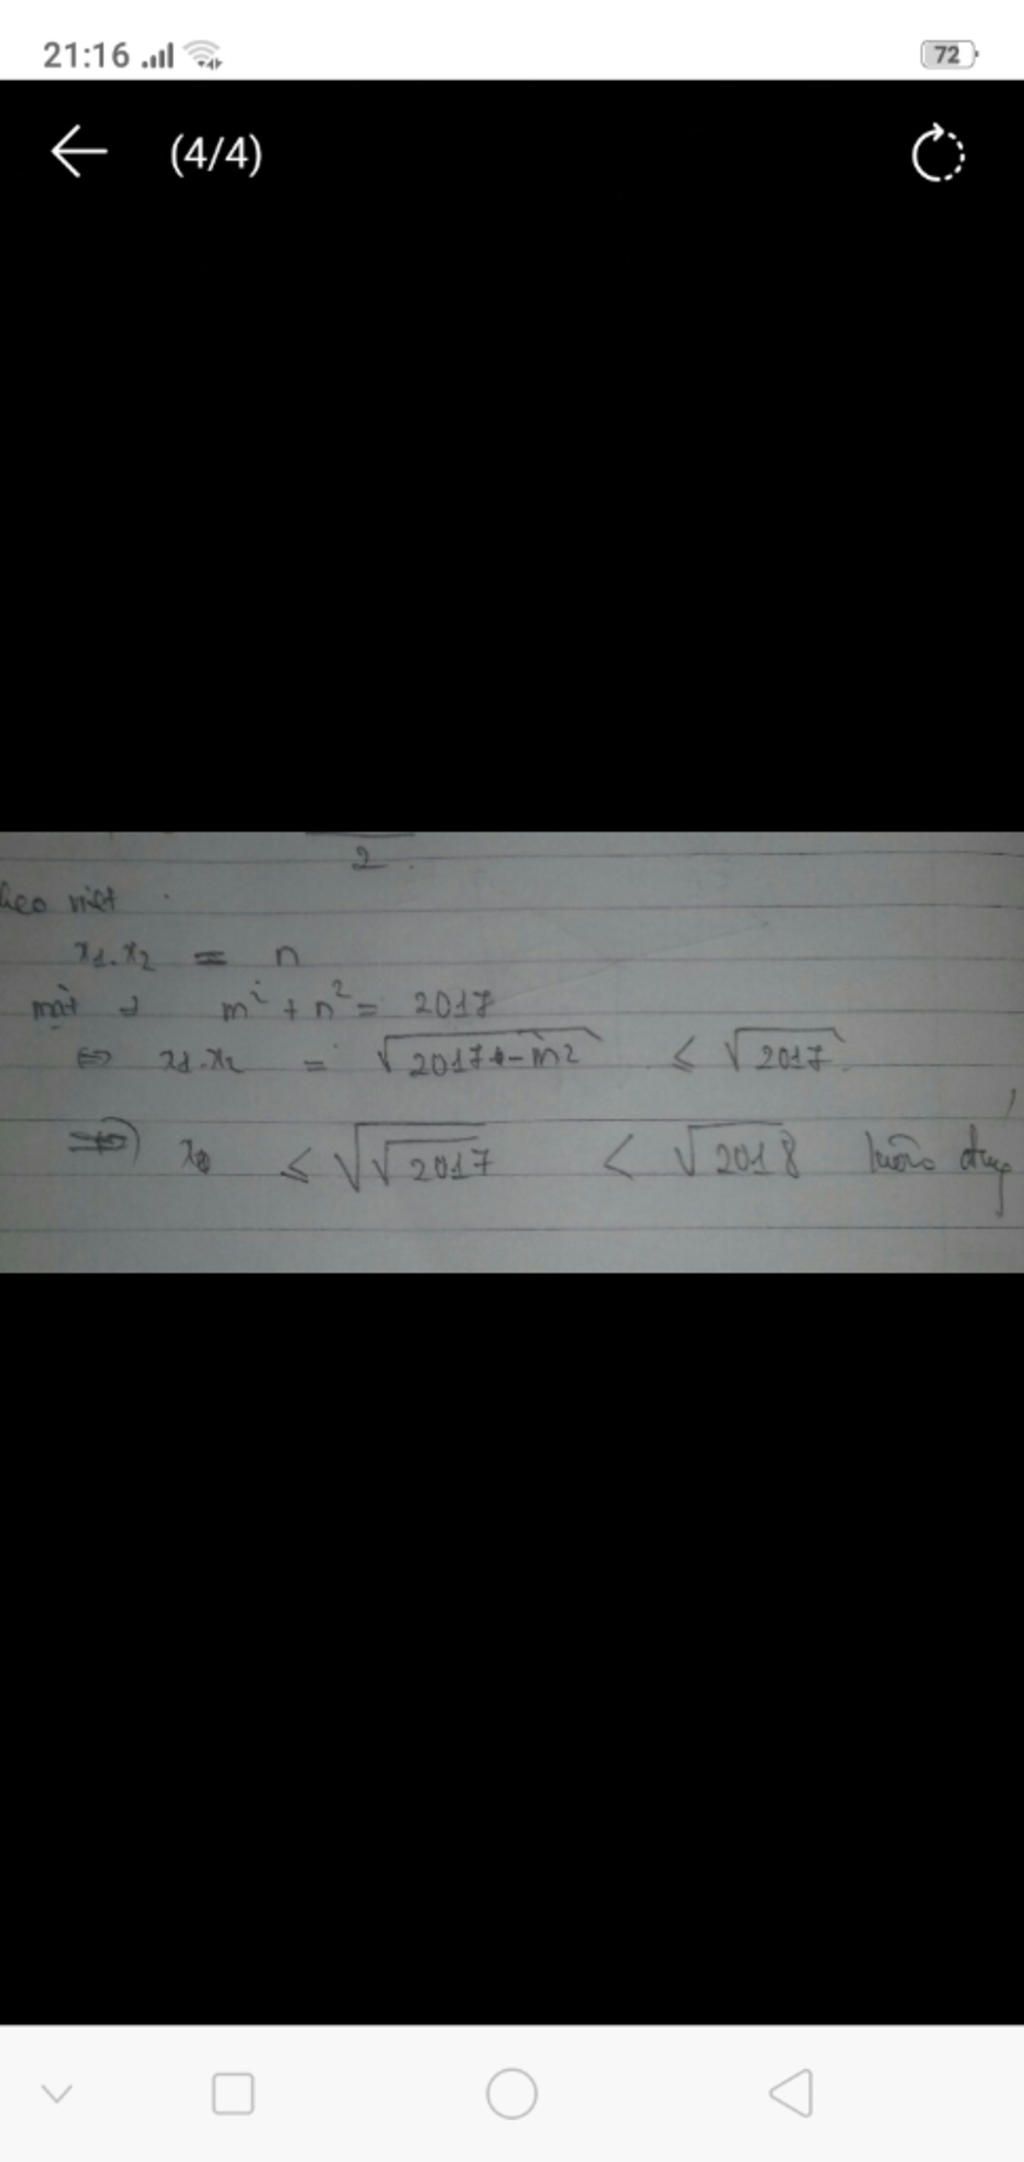 21:16
72
(4/4)
2
heo viét
x1.x2 = n
mà m² + n² = 2017
⇔ x1.x2 = √2017-m2 ≤ √2017
⇒ x ≤ √√2017 < √2018 luôn đúng